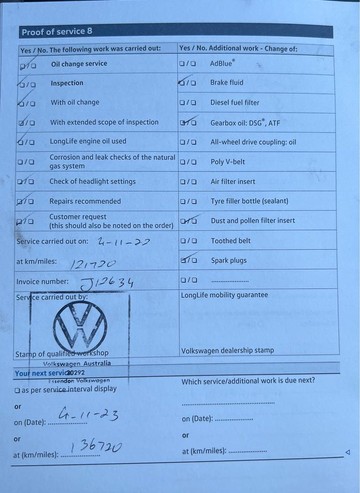 Proof of service 8
Yes / No. The following work was carried out: Yes / No. Additional work - Change of:
Oil change service AdBlue®
Inspection Brake fluid
With oil change Diesel fuel filter
With extended scope of inspection Gearbox oil: DSG®, ATF
LongLife engine oil used All-wheel drive coupling: oil
Corrosion and leak checks of the natural Poly V-belt
gas system
Check of headlight settings Air filter insert
Repairs recommended Tyre filler bottle (sealant)
Customer request Dust and pollen filter insert
(this should also be noted on the order)
Service carried out on: 4-11-22 Toothed belt
at km/miles: 121720 Spark plugs
Invoice number: J12634
Service carried out by: LongLife mobility guarantee
Stamp of qualified workshop Volkswagen dealership stamp
Volkswagen Australia
Your next service 20292
Essendon Volkswagen
as per service interval display Which service/additional work is due next?
or
on (Date): 4-11-23 on (Date):
or or
at (km/miles): 136720 at (km/miles):